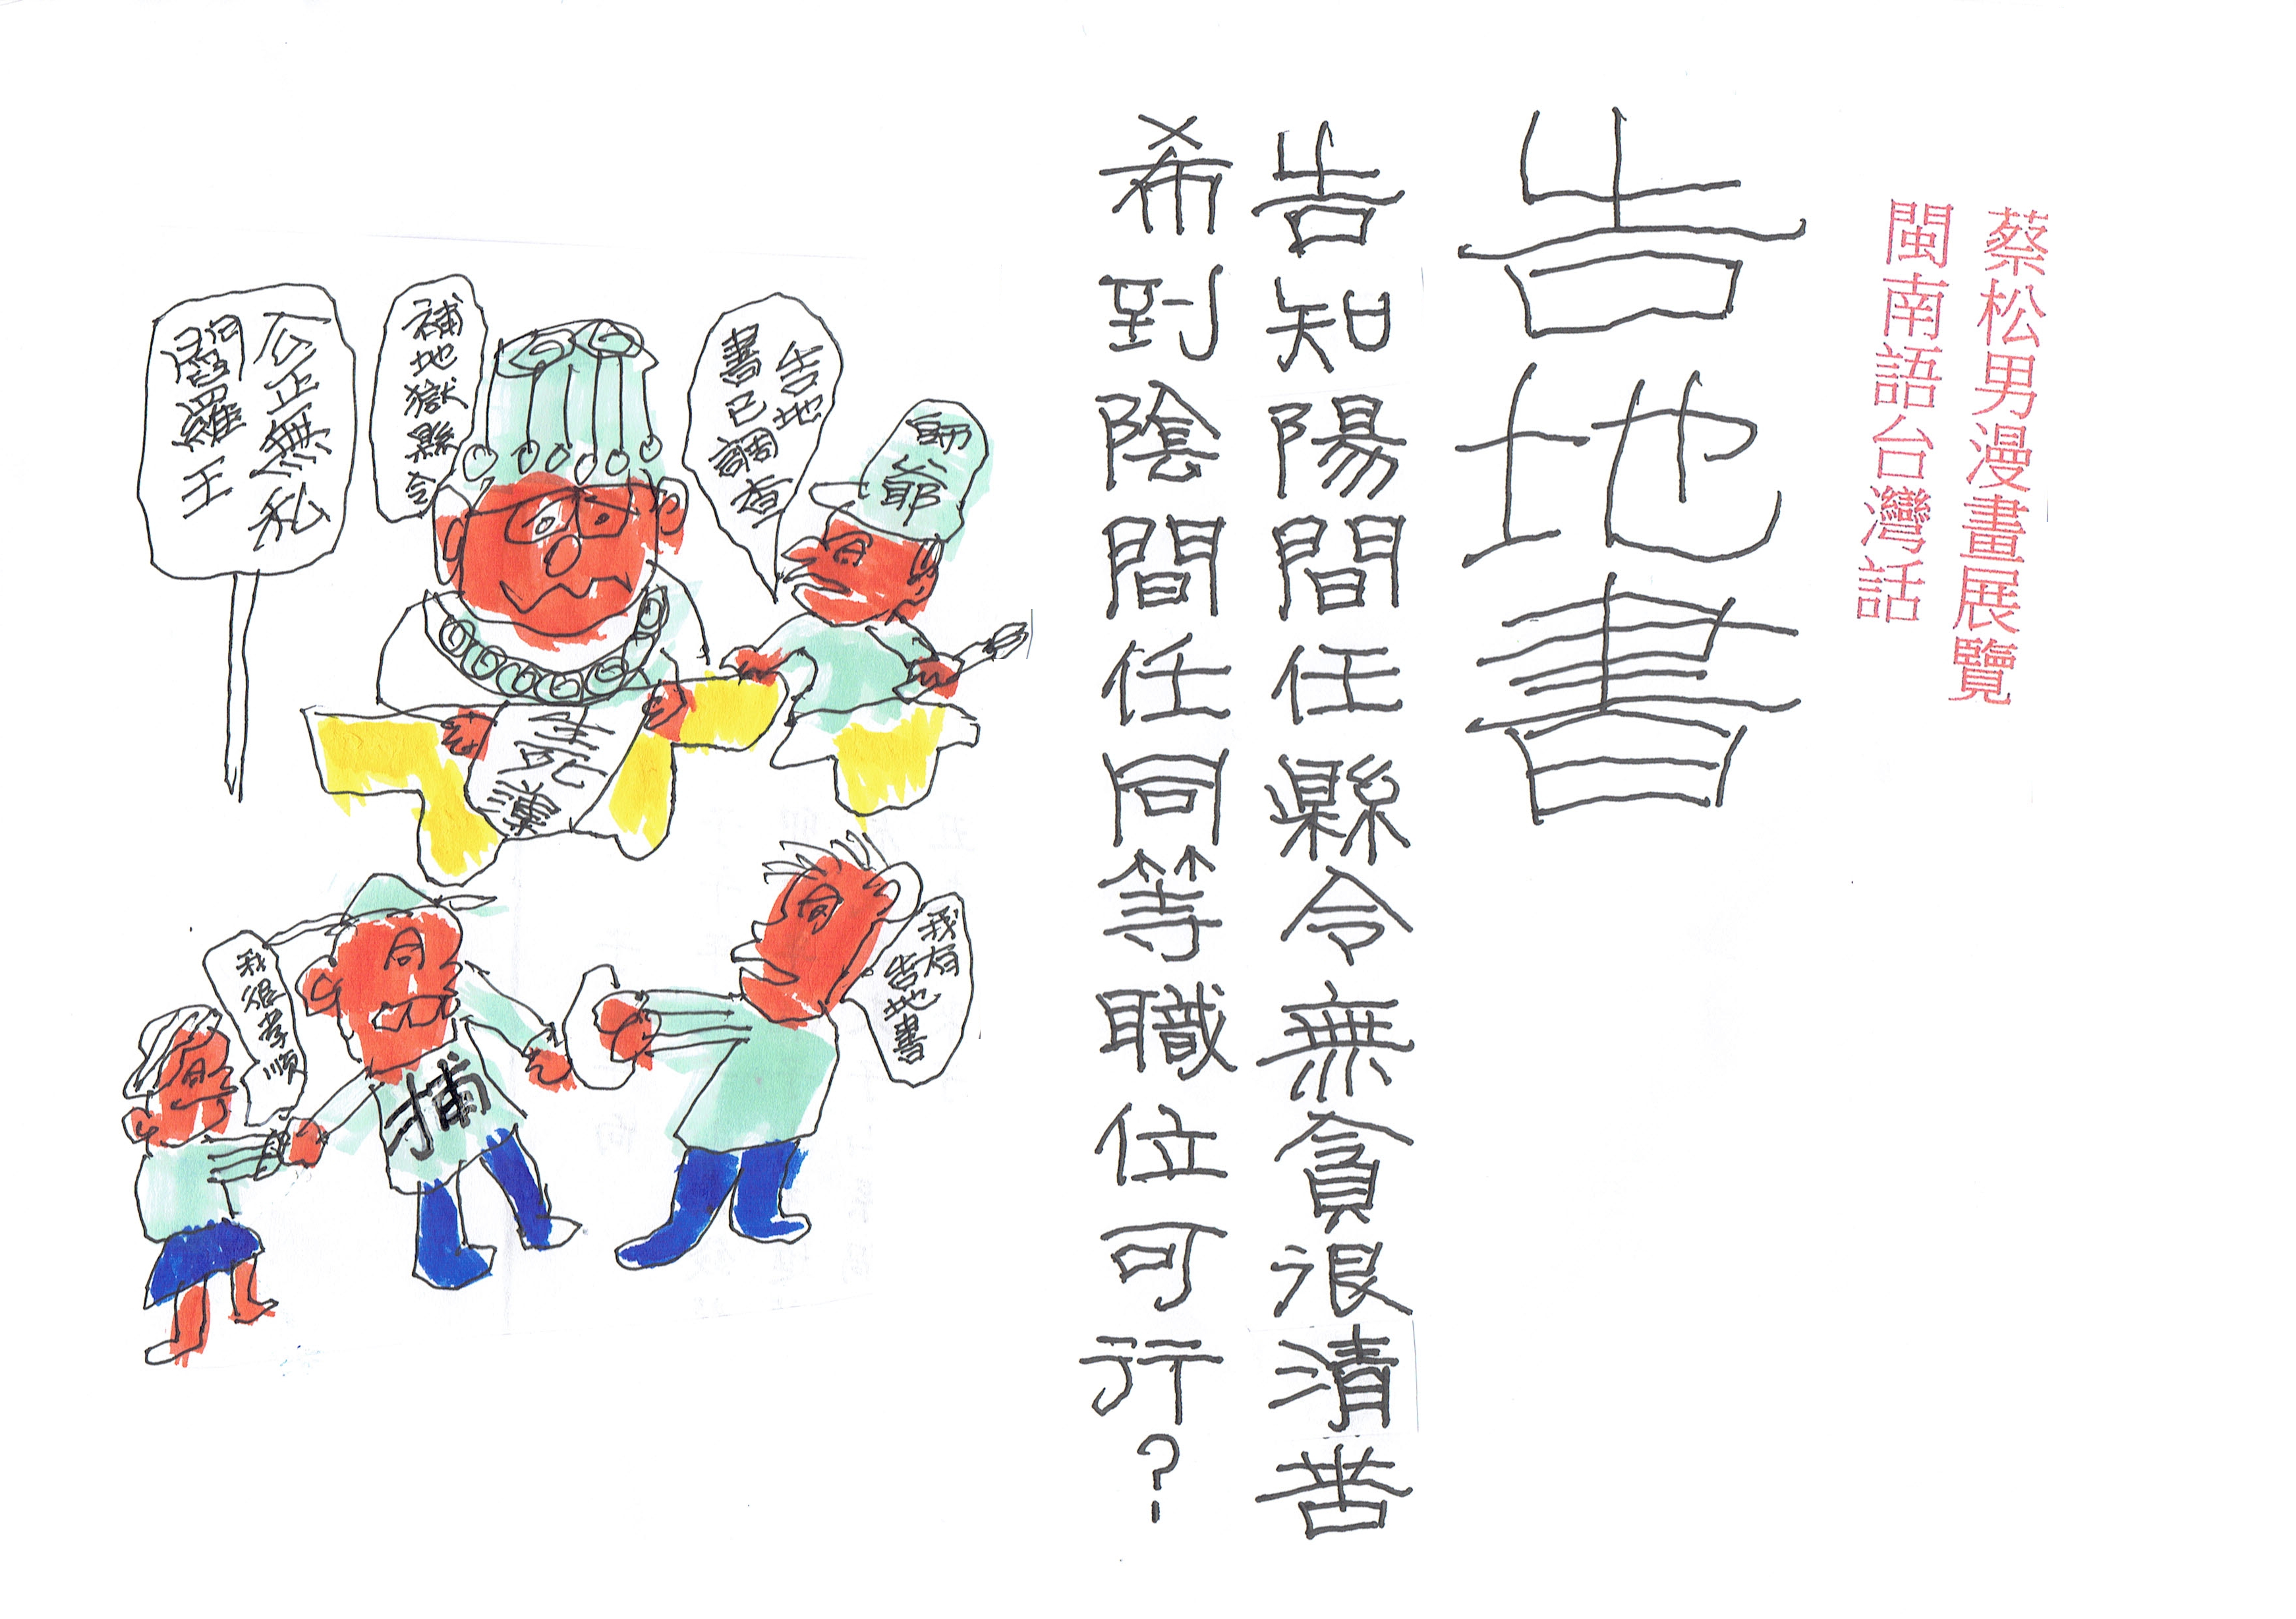 蔡松男漫畫展覽
閩南語台灣話
告地書
告知陽間任縣令無貪很清苦
希到陰間任同等職位可行?
師爺
告地
書已調查
補地獄縣令
公正無私
閻羅王
我有
告地書
捕
我很孝順